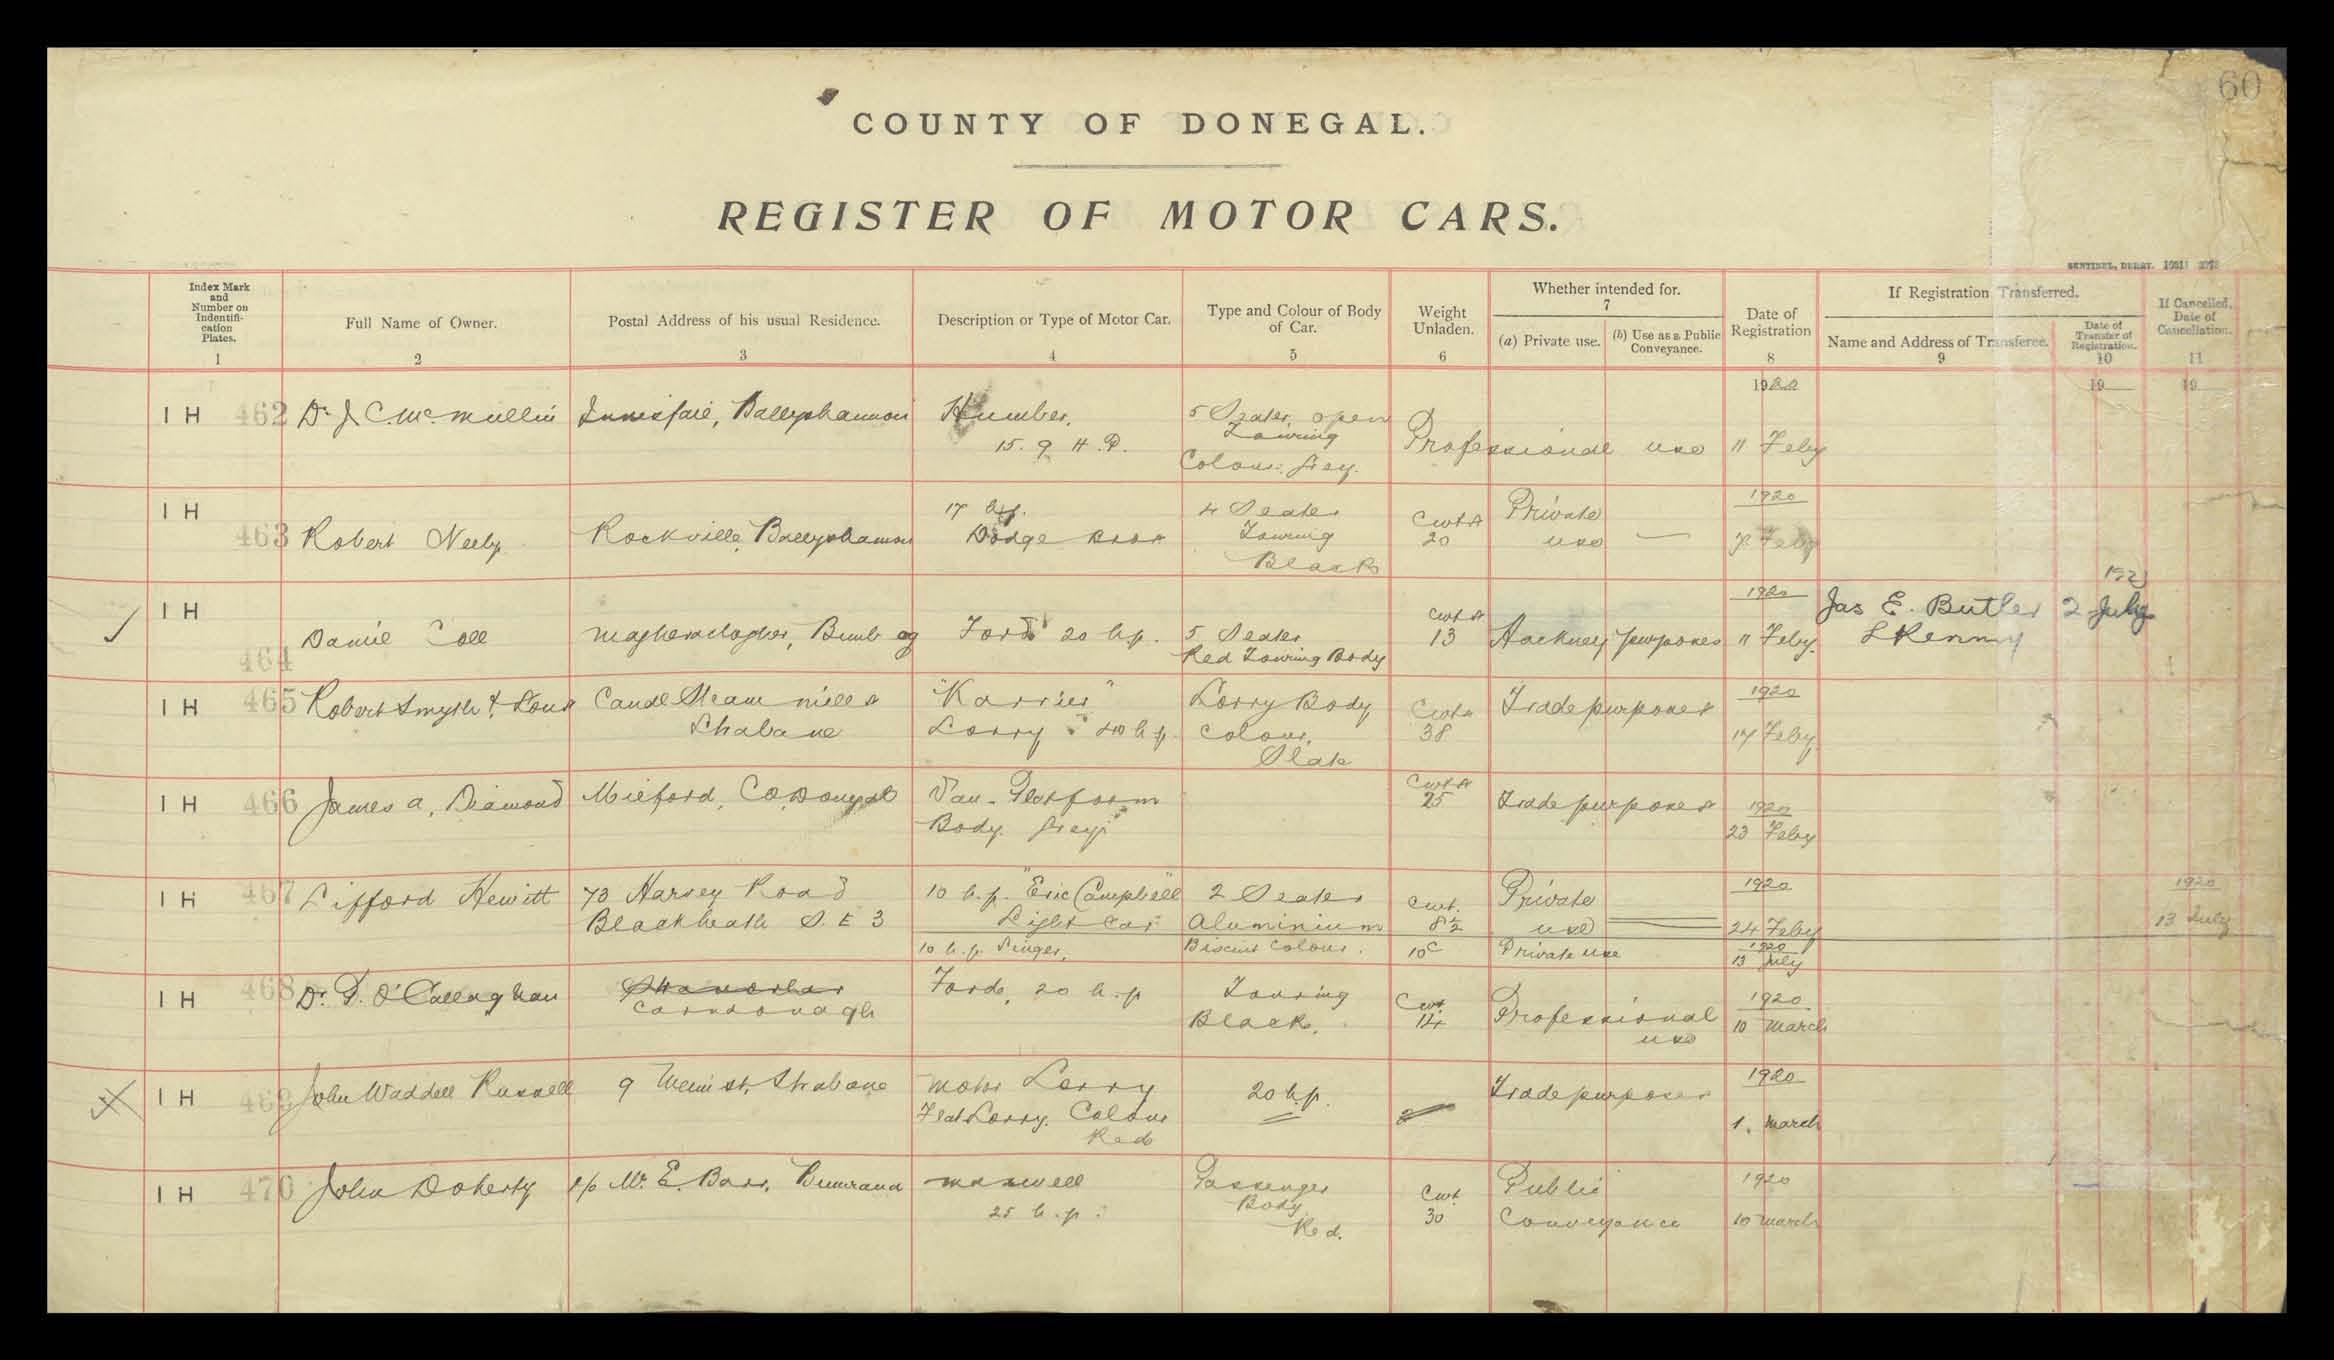 60
COUNTY OF DONEGAL.
REGISTER OF MOTOR CARS.
SENTINEL, DERRY.
Index Mark and Number on Indentifi-cation Plates. 1
Full Name of Owner. 2
Postal Address of his usual Residence. 3
Description or Type of Motor Car. 4
Type and Colour of Body of Car. 5
Weight Unladen. 6
Whether intended for. 7
(a) Private use.
(b) Use as a Public Conveyance.
Date of Registration 8
If Registration Transferred.
Name and Address of Transferee. 9
Date of Transfer of Registration. 10
If Cancelled, Date of Cancellation. 11
19 19
IH 462 Dr. J. C. McMullin
Ballyshannon
Humber,
15.9 H.P.
5 Seater, open
Touring
Colour Grey.
Professional use 11 Feby
IH 463 Robert Neely
Rockville, Ballyshannon
17 h.p.
Dodge Bros
4 Seater
Touring
Black
Cwts
20
Private
use —
1920
Feby
IH 464 Daniel Coll
Magheraclogher, Bunbeg
Ford 20 h.p.
5 Seater
Red Touring Body
Cwts
13
Hackney purposes
1920
11 Feby.
Jas E. Butler
2 July
IH 465 Robert Smyth & Sons
Canal Steam Mills
Strabane
"Karrier"
Lorry 40 h.p.
Lorry Body
Colour,
Slate
Cwts
38
Trade purposes
1920
17 Feby
IH 466 James A. Diamond
Milford, Co. Donegal
Van - Platform
Body. Grey.
Cwts
25
Trade purposes
1920
23 Feby
IH 467 Lifford Hewitt
73 Harvey Road
Blackheath S.E 3
10 h.p. "Eric Campbell"
Light Car
2 Seater
Aluminium
Cwt.
8½
Private
use
1920
24 Feby
1920
13 July
10 h.p. Singer,
Biscuit Colour.
10 c
Private use
1920
13 July
IH 468 Dr. P. O'Callaghan
Stranorlar
Carndonagh
Ford, 20 h.p
Touring
Black.
Cwt
14
Professional
use
1920
10 March
IH 469 John Waddell Russell
9 Main st, Strabane
Motor Lorry
Flat Lorry. Colour
Red
20 h.p.
Trade purposes
1920
1. March
IH 470 John Doherty
c/o Mr. E. Barr, Buncrana
Maxwell
25 h.p.
Passenger
Body
Red.
Cwt
30
Public
Conveyance
1920
10 March